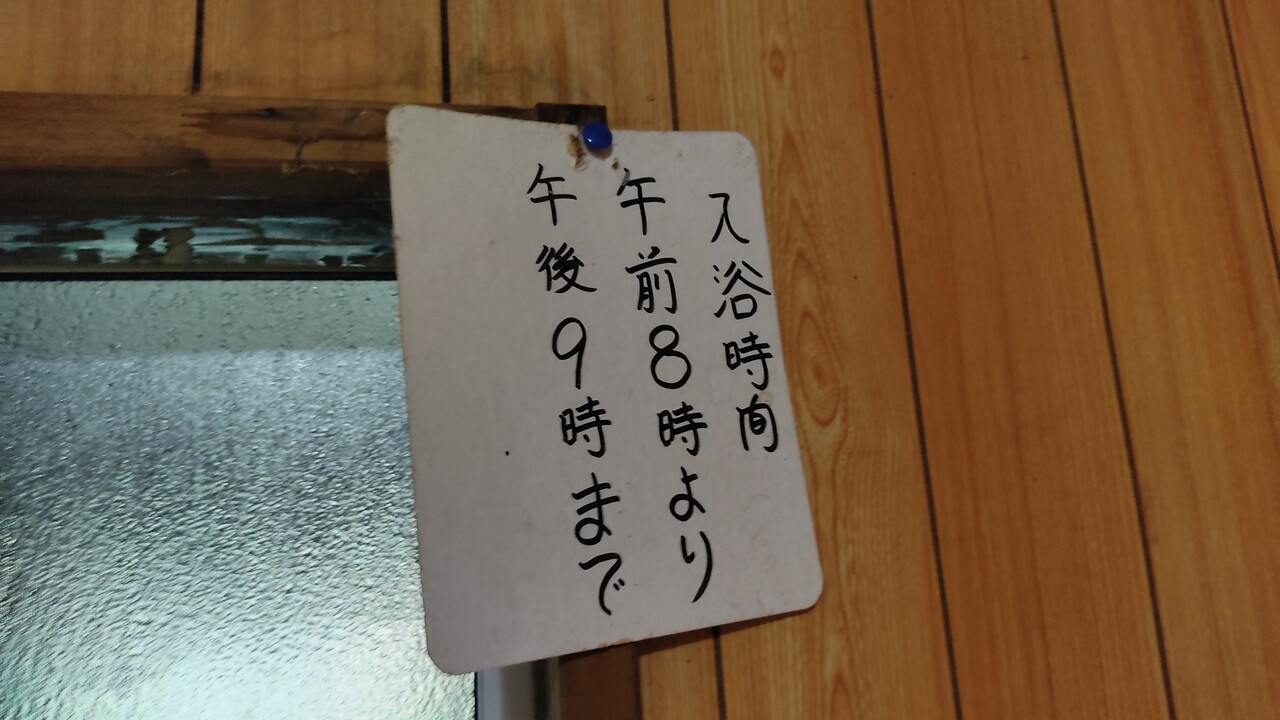 入浴時間
午前8時より
午後9時まで